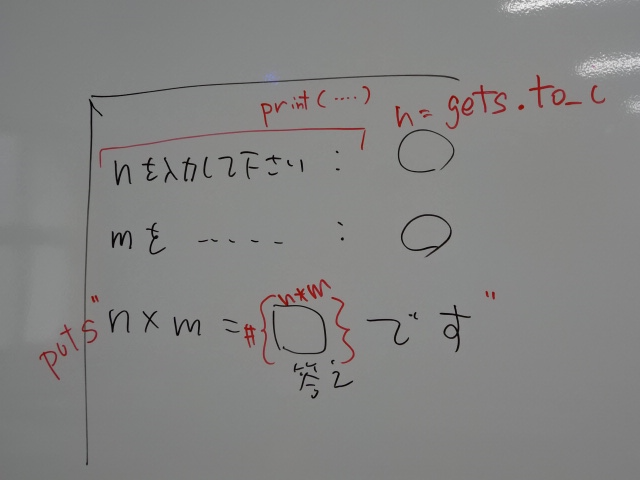 print(....)
n= gets.to_c
nを入力して下さい :
mを ..... :
puts"n×m =#{n*m}です"
答え